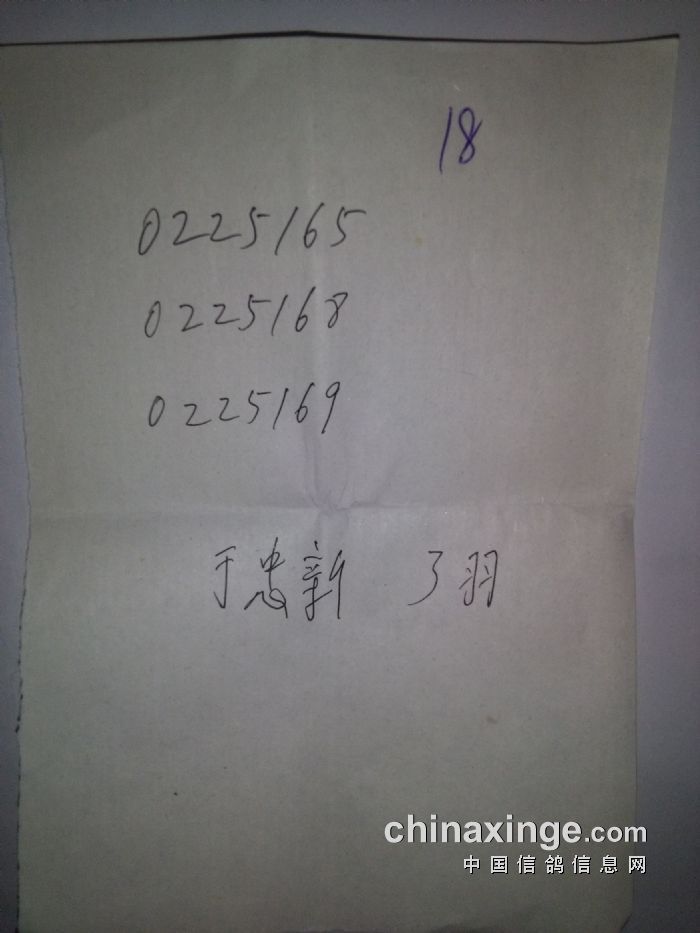 18
0225165
0225168
0225169
于忠新 3羽
chinaxinge.com
中国信鸽信息网